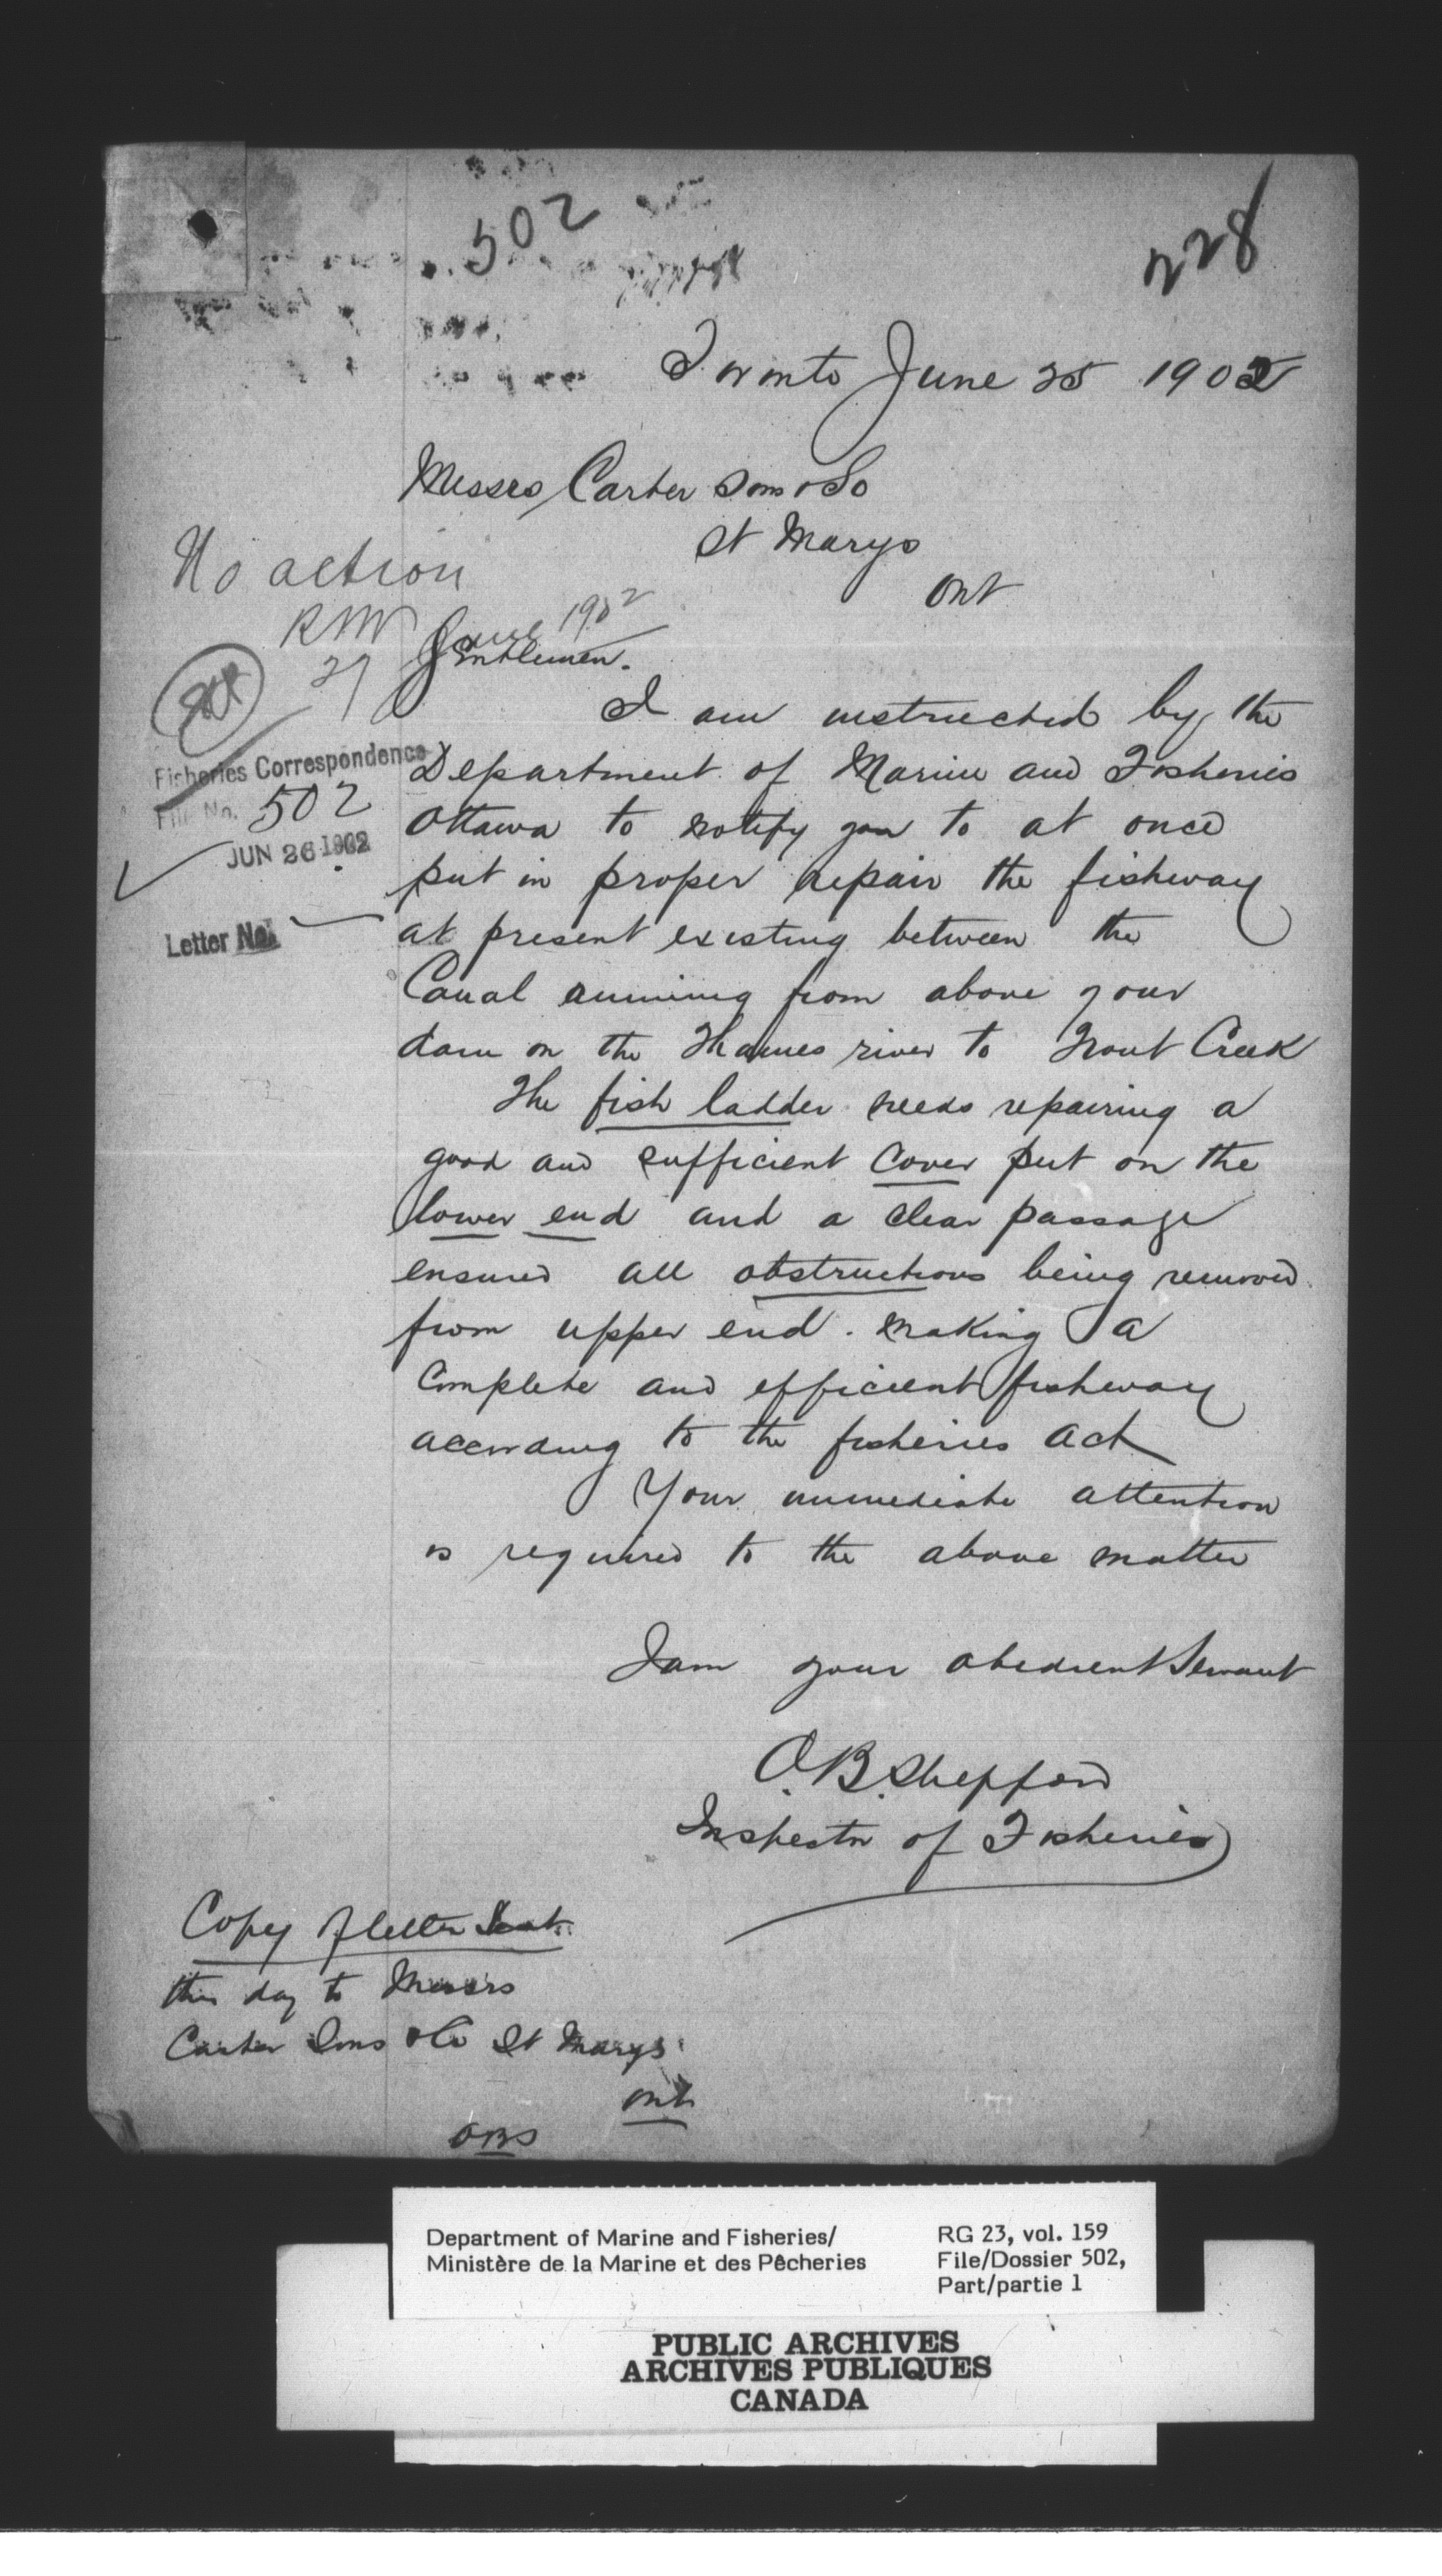 502
228
Toronto June 25 1902
Messrs Carter Sons & Co
St Marys
Ont
No action
RNV
27 June 1902
Gentlemen.
I am instructed by the
Department of Marine and Fisheries
Ottawa to notify you to at once
put in proper repair the fishway
at present existing between the
Canal running from above your
dam on the Thames river to Trout Creek
The fish ladder needs repairing a
good and sufficient cover put on the
lower end and a clear passage
ensured all obstructions being removed
from upper end. making a
Complete and efficient fishway
according to the fisheries act
Your immediate attention
is required to the above matter
I am your obedient Servant
O.B. Sheppard
Inspector of Fisheries
Fisheries Correspondence
File No. 502
JUN 26 1902
Letter No.
Copy of letter Sent
this day to Messrs
Carter Sons & Co St Marys
Ont
OBS
Department of Marine and Fisheries/
Ministère de la Marine et des Pêcheries
RG 23, vol. 159
File/Dossier 502,
Part/partie 1
PUBLIC ARCHIVES
ARCHIVES PUBLIQUES
CANADA